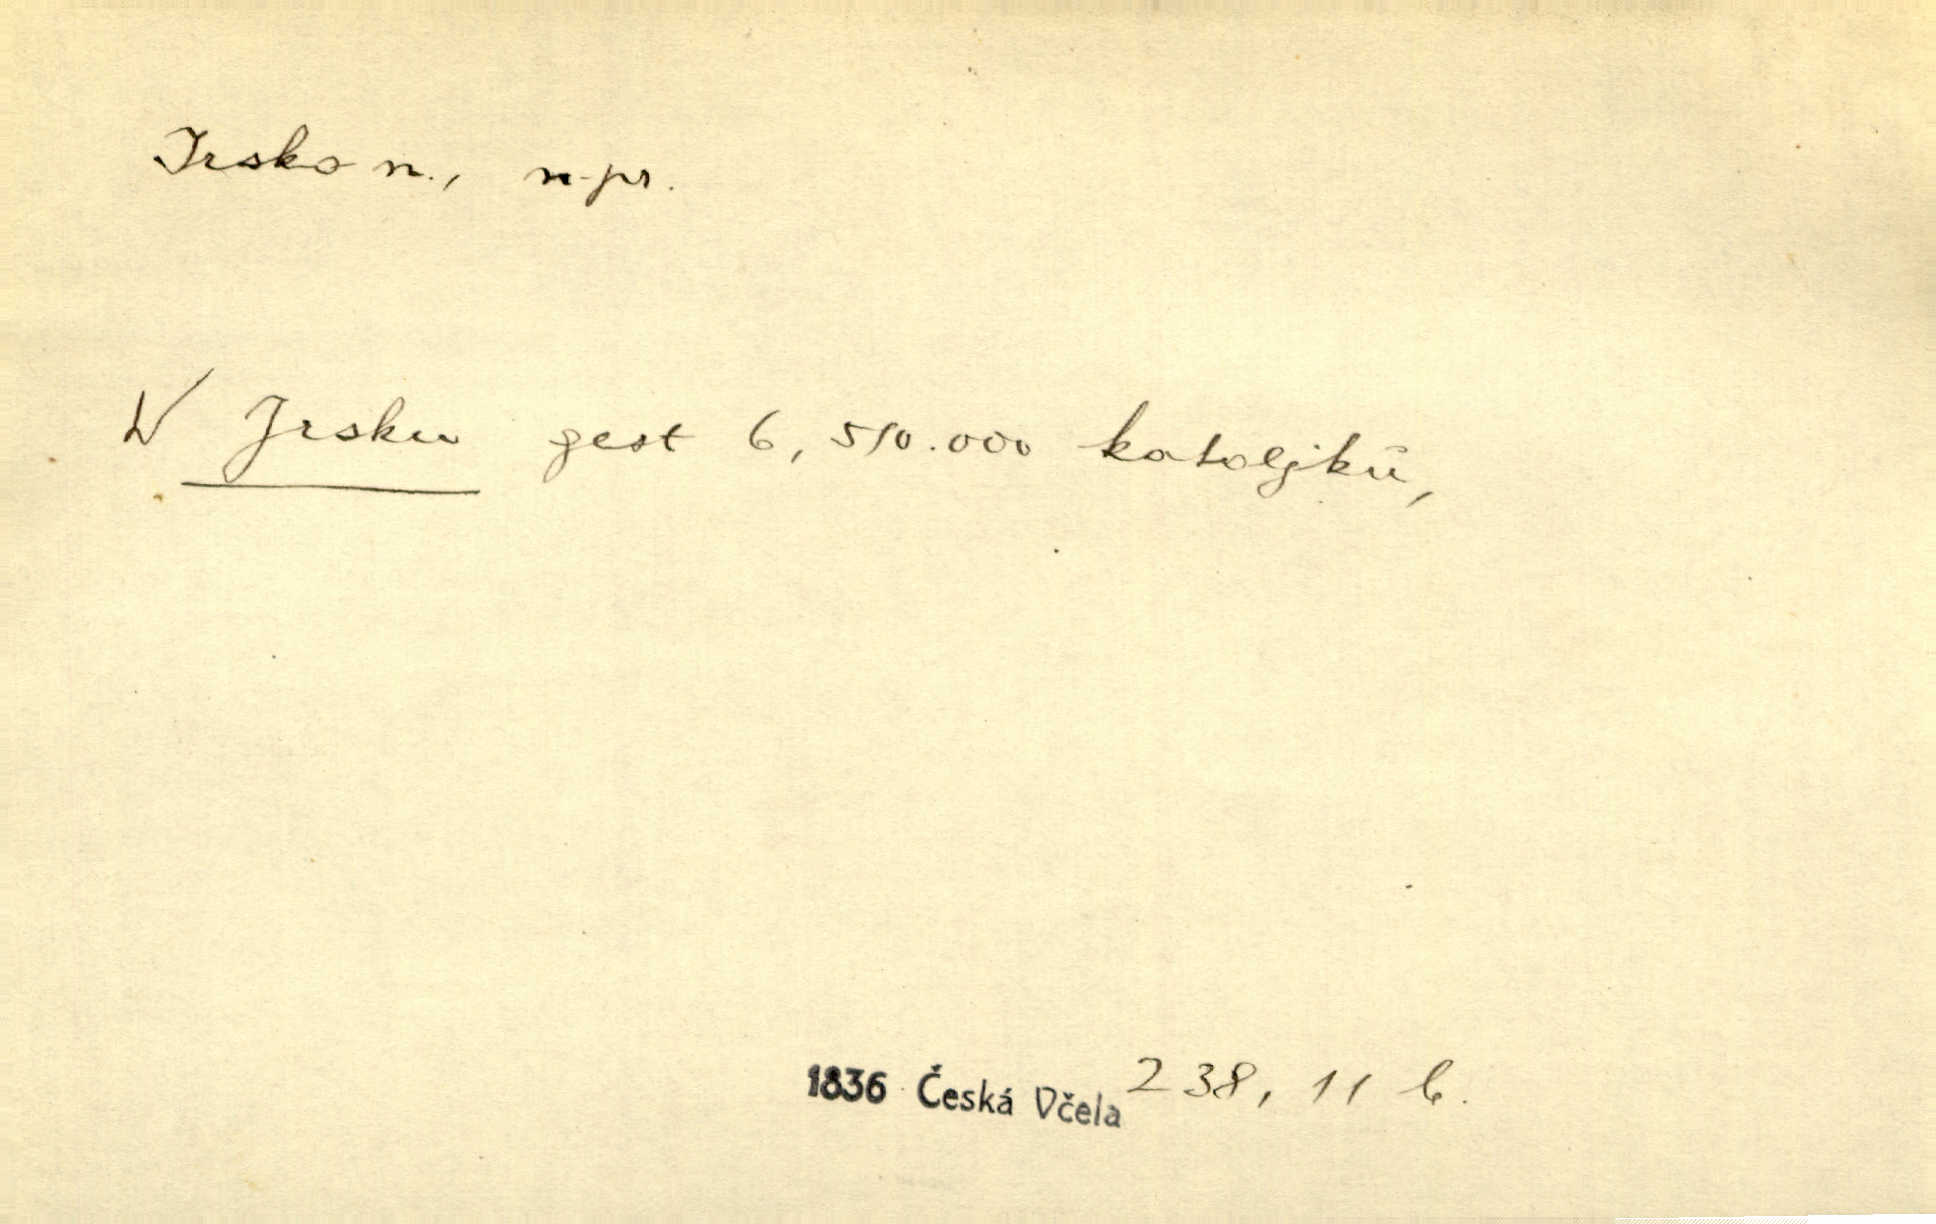 Irsko n., n. pr.
W Jrsku gest 6,510.000 katoljků,
1836 Česká Včela 238, 11 b.